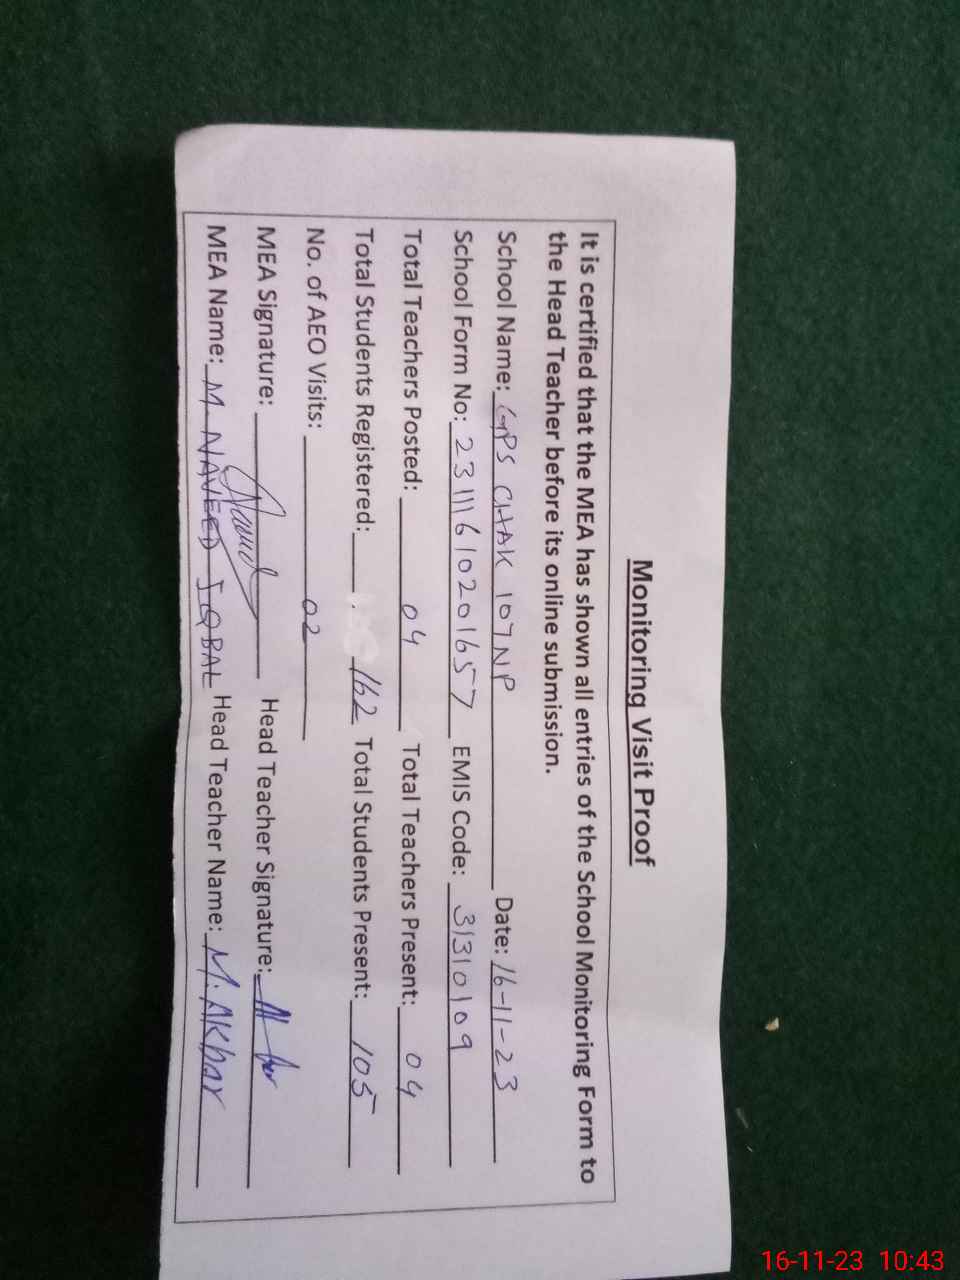 Monitoring Visit Proof
It is certified that the MEA has shown all entries of the School Monitoring Form to
the Head Teacher before its online submission.
School Name: GPS CHAK 107NP Date: 16-11-23
School Form No: 23111610201657 EMIS Code: 31310109
Total Teachers Posted: 04 Total Teachers Present: 04
Total Students Registered: 162 Total Students Present: 105
No. of AEO Visits: 02
MEA Signature: Head Teacher Signature:
MEA Name: M NAVEED IQBAL Head Teacher Name: M. Akbar
16-11-23 10:43